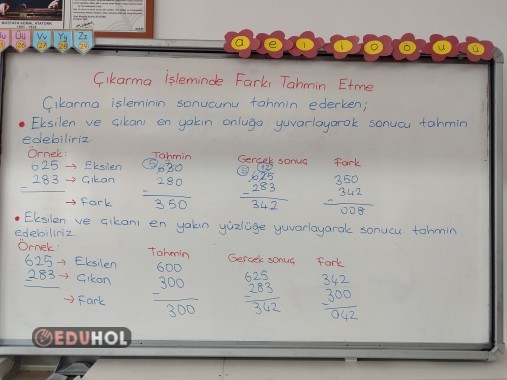 MUSTAFA KEMAL ATATÜRK
Uu Üü Vv Yy Zz
26 27 28 29
a e ı i o ö u ü
Çıkarma İşleminde Farkı Tahmin Etme
Çıkarma işleminin sonucunu tahmin ederken;
• Eksilen ve çıkanı en yakın onluğa yuvarlayarak sonucu tahmin
edebiliriz.
Örnek: Tahmin Gerçek sonuç Fark
5 5 12
625 → Eksilen 630 625 350
283 → Çıkan 280 - 283 - 342
→ Fark - 350 342 008
• Eksilen ve çıkanı en yakın yüzlüğe yuvarlayarak sonucu tahmin
edebiliriz.
Örnek: Tahmin Gerçek sonuç Fark
625 → Eksilen 600 625 342
283 → Çıkan 300 283 300
→ Fark - 300 - 342 - 042
EDUHOL